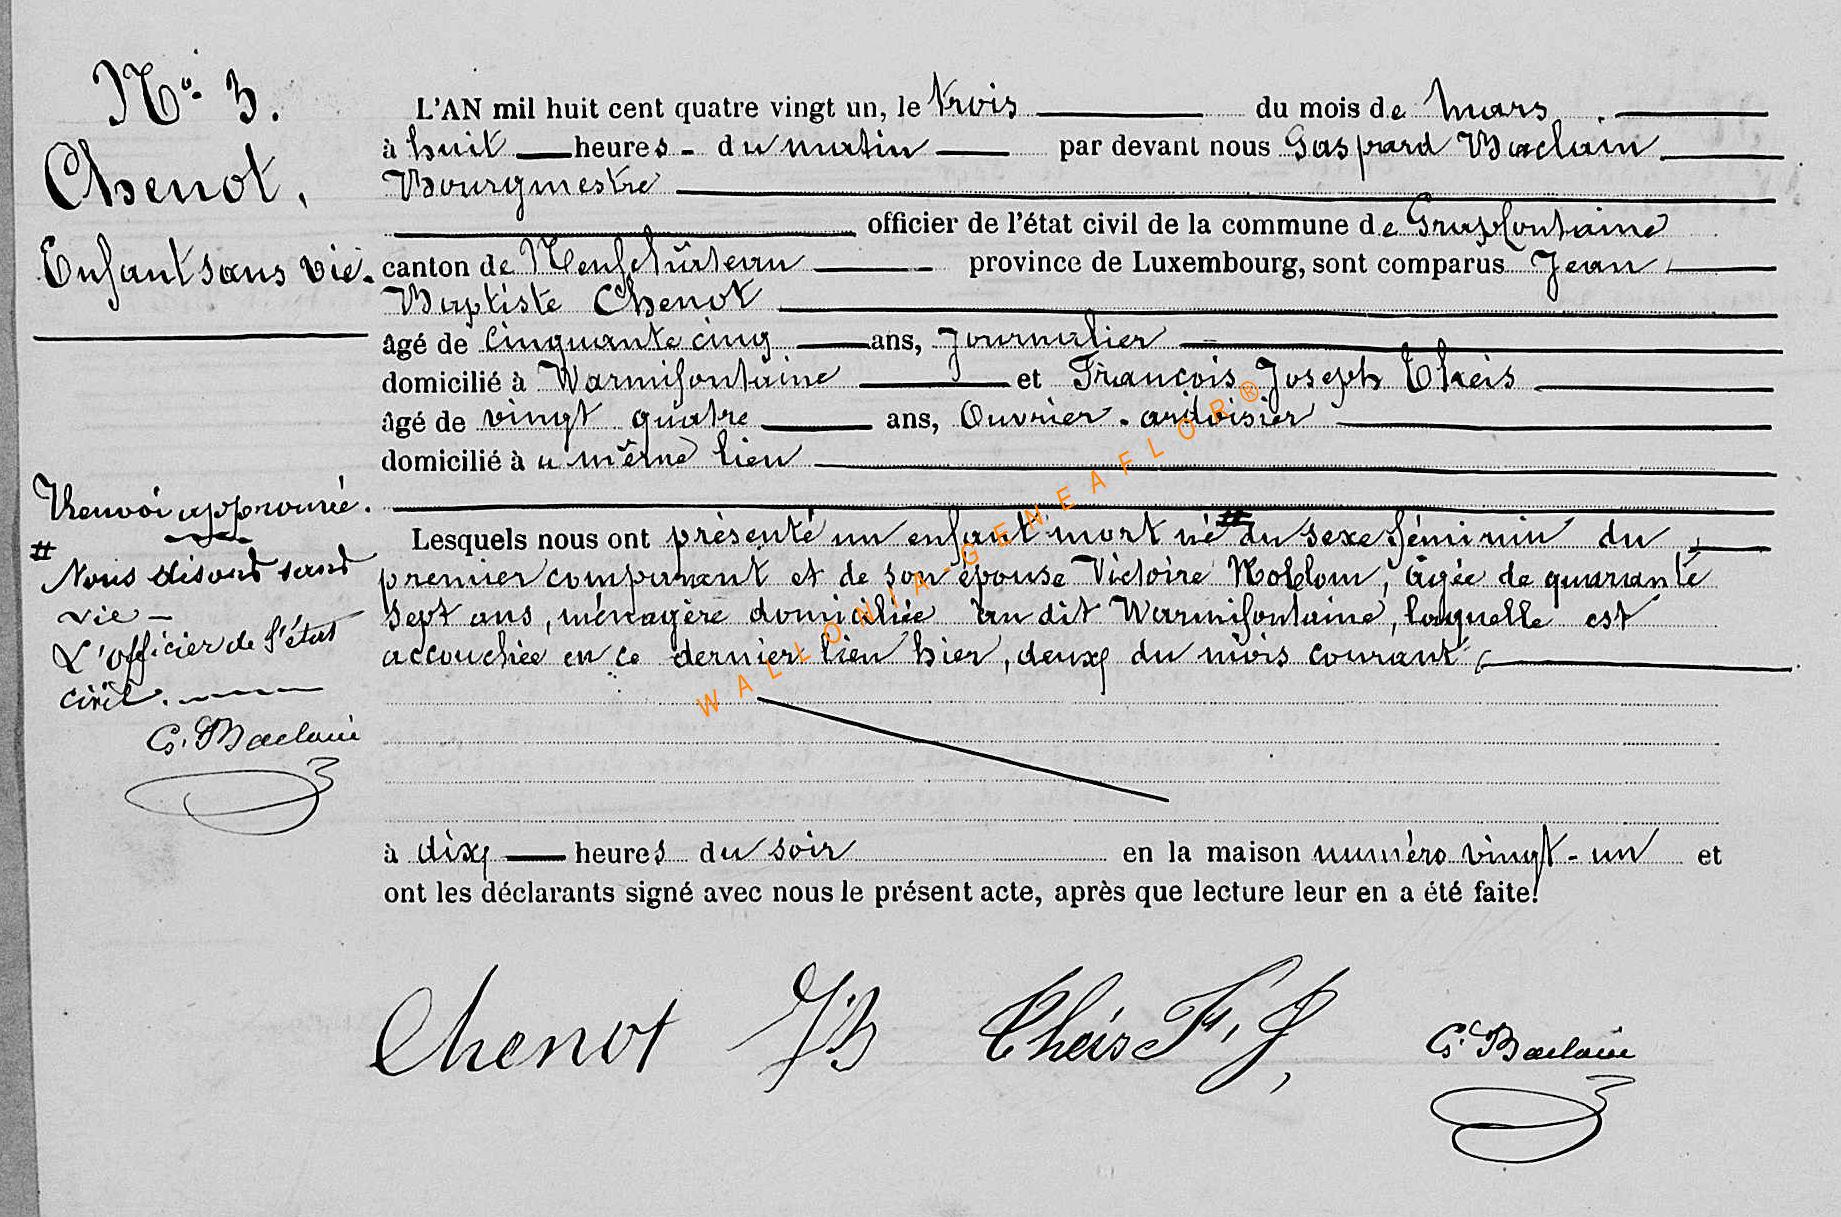 N° 3.
Chenot,
Enfant sans vie.
L'AN mil huit cent quatre vingt un, le trois du mois de mars
à huit heures du matin par devant nous Gaspard Baclain
Bourgmestre
officier de l'état civil de la commune de Grapfontaine
canton de Neufchâteau province de Luxembourg, sont comparus Jean
Baptiste Chenot
âgé de cinquante cinq ans, journalier
domicilié à Warmifontaine et François Joseph Theis
âgé de vingt quatre ans, Ouvrier-ardoisier
domicilié à u même lieu
Lesquels nous ont présenté un enfant mort né # du sexe féminin du
premier comparant et de son épouse Victoire, âgée de quarante
sept ans, ménagère domiciliée au dit Warmifontaine, laquelle est
accouchée en ce dernier lieu hier, deux du mois courant,
à dix heures du soir en la maison numéro vingt-un et
ont les déclarants signé avec nous le présent acte, après que lecture leur en a été faite.
Renvoi approuvé.
# Nous disons sans
vie -
L'officier de l'état
civil.
G. Baclain
Chenot JB Theis F. J, G. Baclain
WALLONIA-GENEAFLOR®